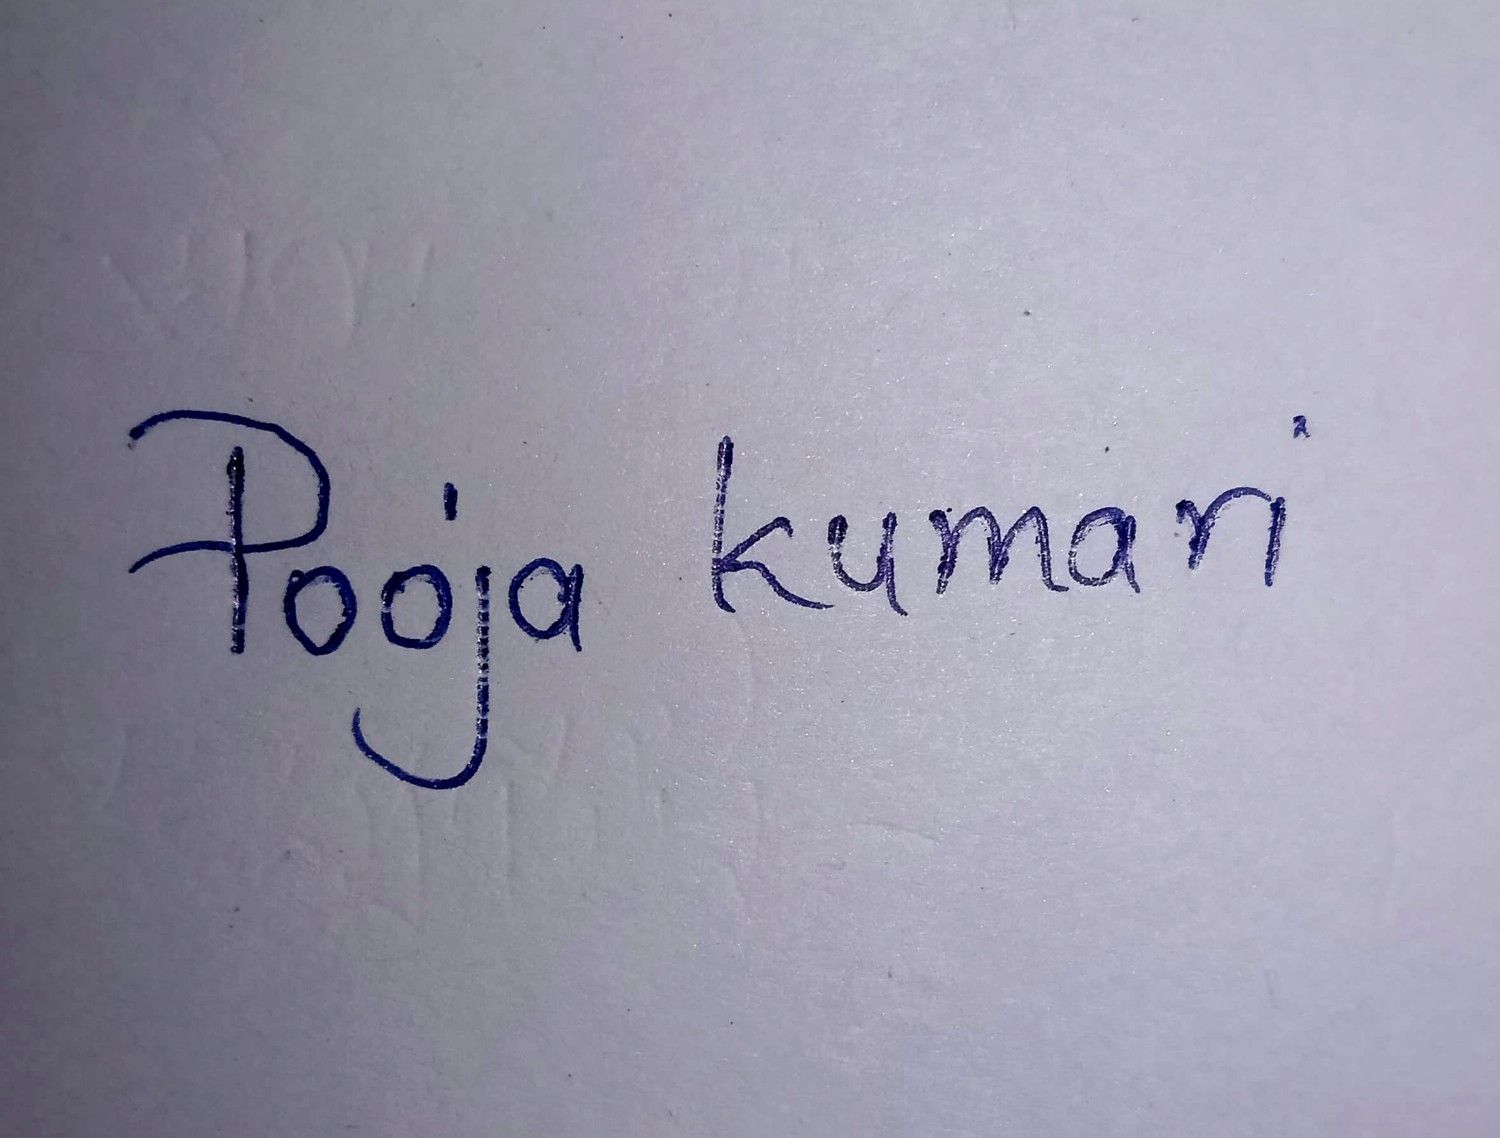 Pooja kumari